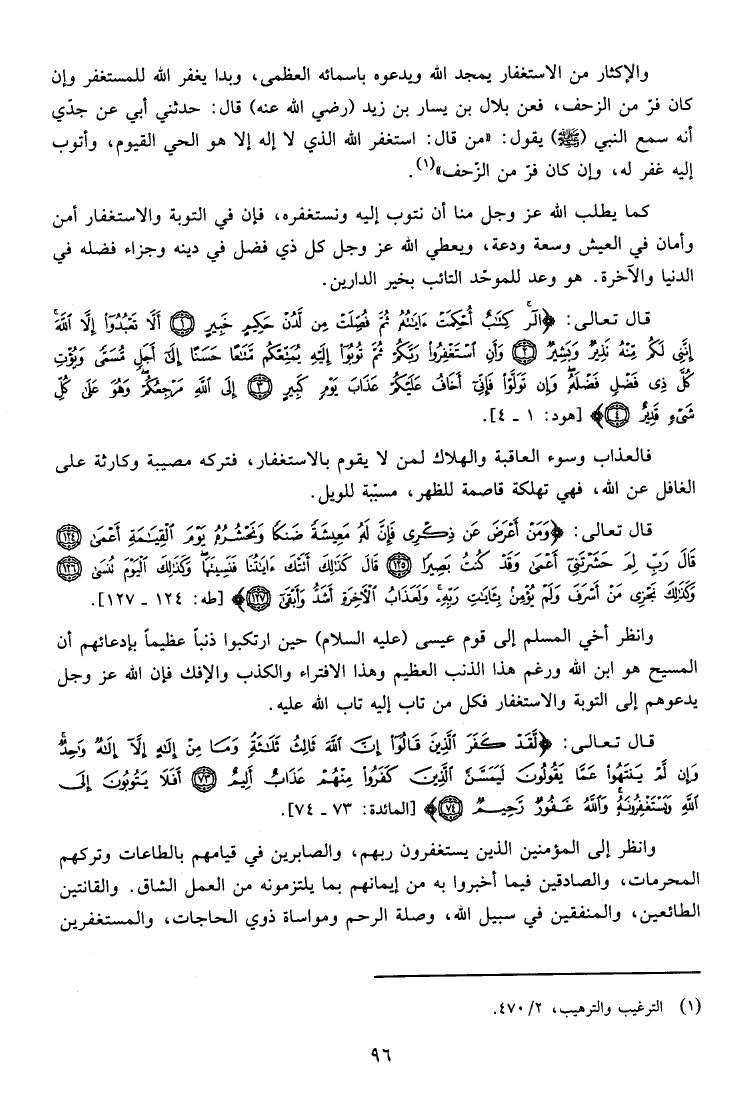 والإكثار من الاستغفار يمجد الله ويدعوه باسمائه العظمى، وبدا يغفر الله للمستغفر وإن
كان فرّ من الزحف، فعن بلال بن يسار بن زيد (رضي الله عنه) قال: حدثني أبي عن جدّي
أنه سمع النبي (ﷺ) يقول: «من قال: استغفر الله الذي لا إله إلا هو الحي القيوم، وأتوب
إليه غفر له، وإن كان فرّ من الزّحف»(١).
كما يطلب الله عز وجل منا أن نتوب إليه ونستغفره، فإن في التوبة والاستغفار أمن
وأمان في العيش وسعة ودعة، ويعطي الله عز وجل كل ذي فضل في دينه وجزاء فضله في
الدنيا والآخرة. هو وعد للموحّد التائب بخير الدارين.
قال تعالى: ﴿الٓرۚ كِتَٰبٌ أُحْكِمَتْ ءَايَٰتُهُۥ ثُمَّ فُصِّلَتْ مِن لَّدُنْ حَكِيمٍ خَبِيرٍ ﴿١﴾ أَلَّا تَعْبُدُوٓا۟ إِلَّا ٱللَّهَۚ
إِنَّنِى لَكُم مِّنْهُ نَذِيرٌ وَبَشِيرٌ ﴿٢﴾ وَأَنِ ٱسْتَغْفِرُوا۟ رَبَّكُمْ ثُمَّ تُوبُوٓا۟ إِلَيْهِ يُمَتِّعْكُم مَّتَٰعًا حَسَنًا إِلَىٰٓ أَجَلٍ مُّسَمًّى وَيُؤْتِ
كُلَّ ذِى فَضْلٍ فَضْلَهُۥۖ وَإِن تَوَلَّوْا۟ فَإِنِّىٓ أَخَافُ عَلَيْكُمْ عَذَابَ يَوْمٍ كَبِيرٍ ﴿٣﴾ إِلَى ٱللَّهِ مَرْجِعُكُمْۖ وَهُوَ عَلَىٰ كُلِّ
شَىْءٍ قَدِيرٌ ﴿٤﴾﴾ [هود: ١ ـ ٤].
فالعذاب وسوء العاقبة والهلاك لمن لا يقوم بالاستغفار، فتركه مصيبة وكارثة على
الغافل عن الله، فهي تهلكة قاصمة للظهر، مسبّبة للويل.
قال تعالى: ﴿وَمَنْ أَعْرَضَ عَن ذِكْرِى فَإِنَّ لَهُۥ مَعِيشَةً ضَنكًا وَنَحْشُرُهُۥ يَوْمَ ٱلْقِيَٰمَةِ أَعْمَىٰ ﴿١٢٤﴾
قَالَ رَبِّ لِمَ حَشَرْتَنِىٓ أَعْمَىٰ وَقَدْ كُنتُ بَصِيرًا ﴿١٢٥﴾ قَالَ كَذَٰلِكَ أَتَتْكَ ءَايَٰتُنَا فَنَسِينَهَاۖ وَكَذَٰلِكَ ٱلْيَوْمَ تُنسَىٰ ﴿١٢٦﴾
وَكَذَٰلِكَ نَجْزِى مَنْ أَسْرَفَ وَلَمْ يُؤْمِنۢ بِـَٔايَٰتِ رَبِّهِۦۚ وَلَعَذَابُ ٱلْءَاخِرَةِ أَشَدُّ وَأَبْقَىٰٓ ﴿١٢٧﴾﴾ [طه: ١٢٤ ـ ١٢٧].
وانظر أخي المسلم إلى قوم عيسى (عليه السلام) حين ارتكبوا ذنباً عظيماً بإدعائهم أن
المسيح هو ابن الله ورغم هذا الذنب العظيم وهذا الافتراء والكذب والإفك فإن الله عز وجل
يدعوهم إلى التوبة والاستغفار فكل من تاب إليه تاب الله عليه.
قال تعالى: ﴿لَّقَدْ كَفَرَ ٱلَّذِينَ قَالُوٓا۟ إِنَّ ٱللَّهَ ثَالِثُ ثَلَٰثَةٍۘ وَمَا مِنْ إِلَٰهٍ إِلَّآ إِلَٰهٌ وَٰحِدٌۚ
وَإِن لَّمْ يَنتَهُوا۟ عَمَّا يَقُولُونَ لَيَمَسَّنَّ ٱلَّذِينَ كَفَرُوا۟ مِنْهُمْ عَذَابٌ أَلِيمٌ ﴿٧٣﴾ أَفَلَا يَتُوبُونَ إِلَى
ٱللَّهِ وَيَسْتَغْفِرُونَهُۥۚ وَٱللَّهُ غَفُورٌ رَّحِيمٌ ﴿٧٤﴾﴾ [المائدة: ٧٣ ـ ٧٤].
وانظر إلى المؤمنين الذين يستغفرون ربهم، والصابرين في قيامهم بالطاعات وتركهم
المحرمات، والصادقين فيما أخبروا به من إيمانهم بما يلتزمونه من العمل الشاق. والقانتين
الطائعين، والمنفقين في سبيل الله، وصلة الرحم ومواساة ذوي الحاجات، والمستغفرين
(١) الترغيب والترهيب، ٢/ ٤٧٠.
٩٦